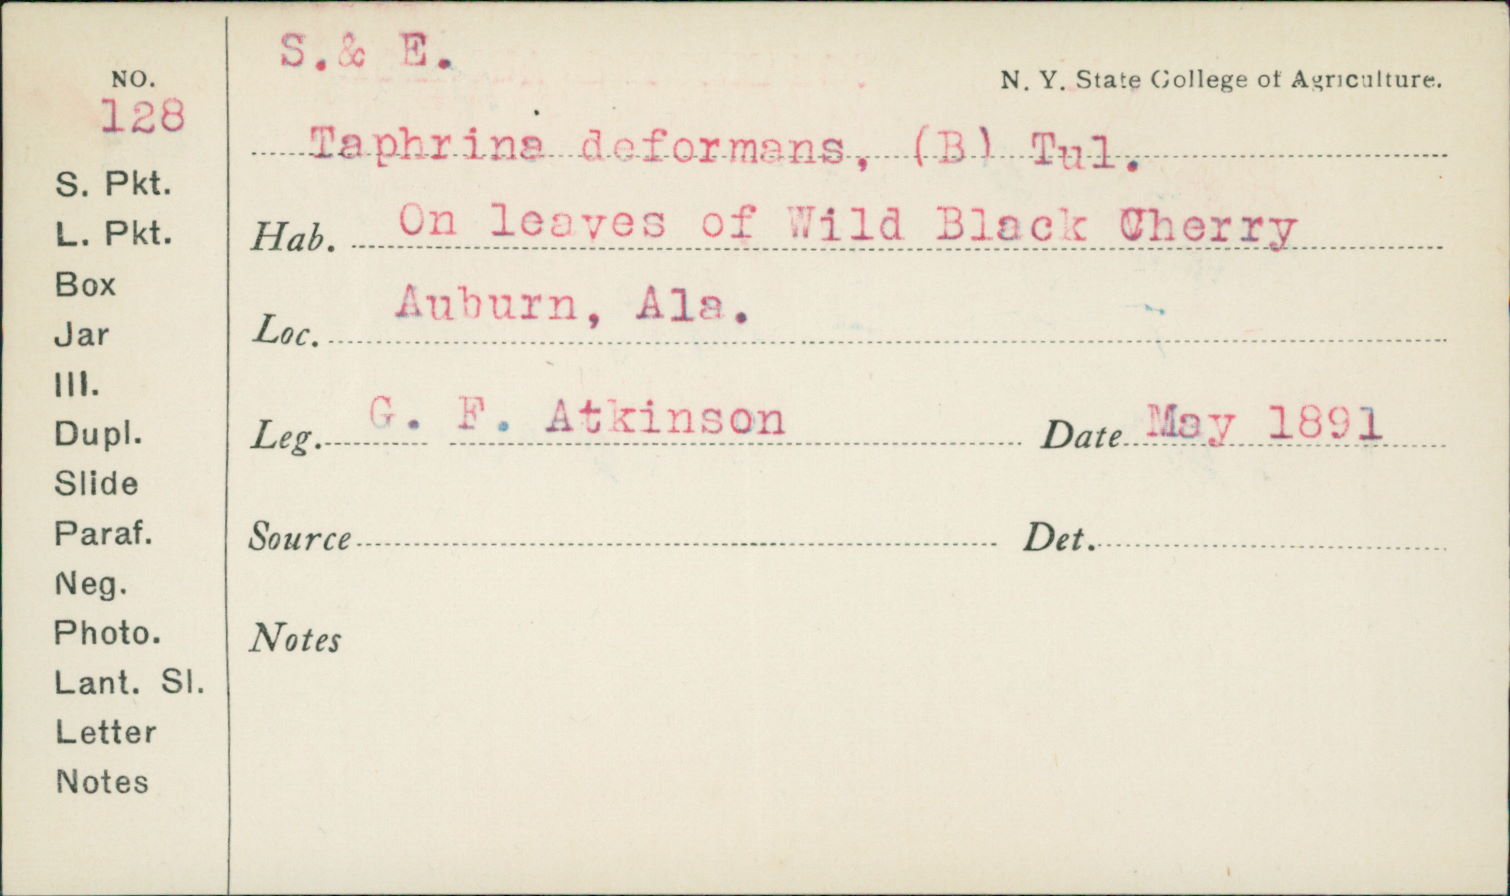 S.& E.
NO.
N. Y. State College of Agriculture.
128
Taphrina deformans, (B) Tul.
S. Pkt.
L. Pkt.
Hab. On leaves of Wild Black Cherry
Box
Auburn, Ala.
Jar
Loc.
Ill.
Leg. G. F. Atkinson Date May 1891
Dupl.
Slide
Paraf.
Source Det.
Neg.
Photo.
Notes
Lant. Sl.
Letter
Notes